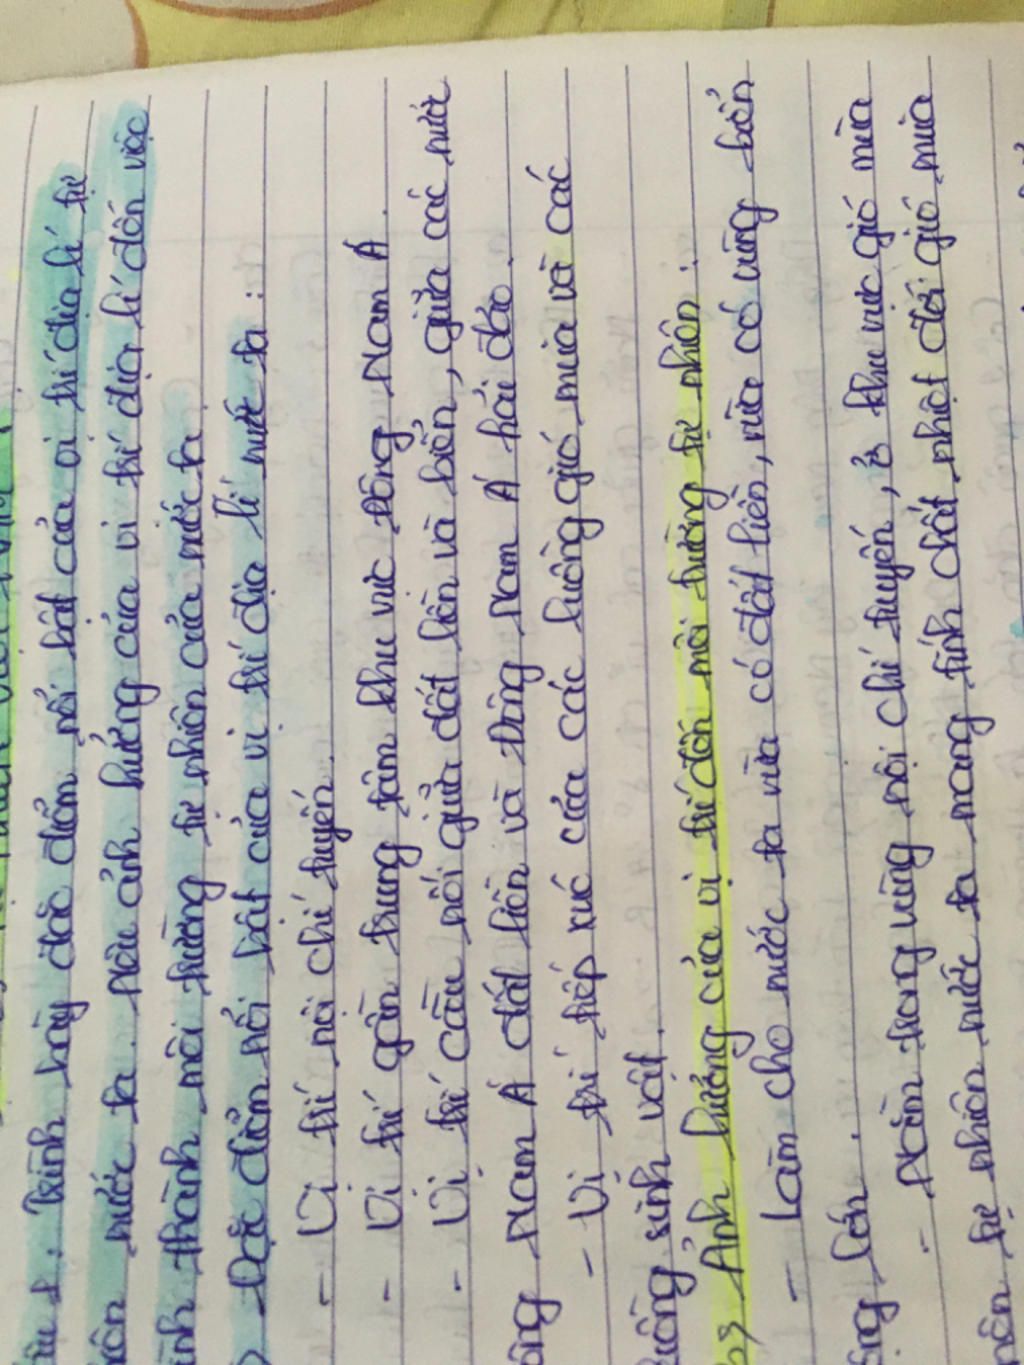 Câu 1: Trình bày đặc điểm nổi bật của vị trí địa lí tự
nhiên nước ta. Nêu ảnh hưởng của vị trí địa lí đến việc
hình thành môi trường tự nhiên của nước ta
Đặc điểm nổi bật của vị trí địa lí nước ta:
- Vị trí nội chí tuyến.
- Vị trí gần trung tâm khu vực Đông Nam Á.
- Vị trí cầu nối giữa đất liền và biển, giữa các nước
Đông Nam Á đất liền và Đông Nam Á hải đảo.
- Vị trí tiếp xúc của các luồng gió mùa và các
luồng sinh vật.
b, Ảnh hưởng của vị trí đến môi trường tự nhiên:
- Làm cho nước ta vừa có đất liền, vừa có vùng biển
rộng lớn.
- Nằm trong vùng nội chí tuyến, ở khu vực gió mùa
nên tự nhiên nước ta mang tính chất nhiệt đới gió mùa